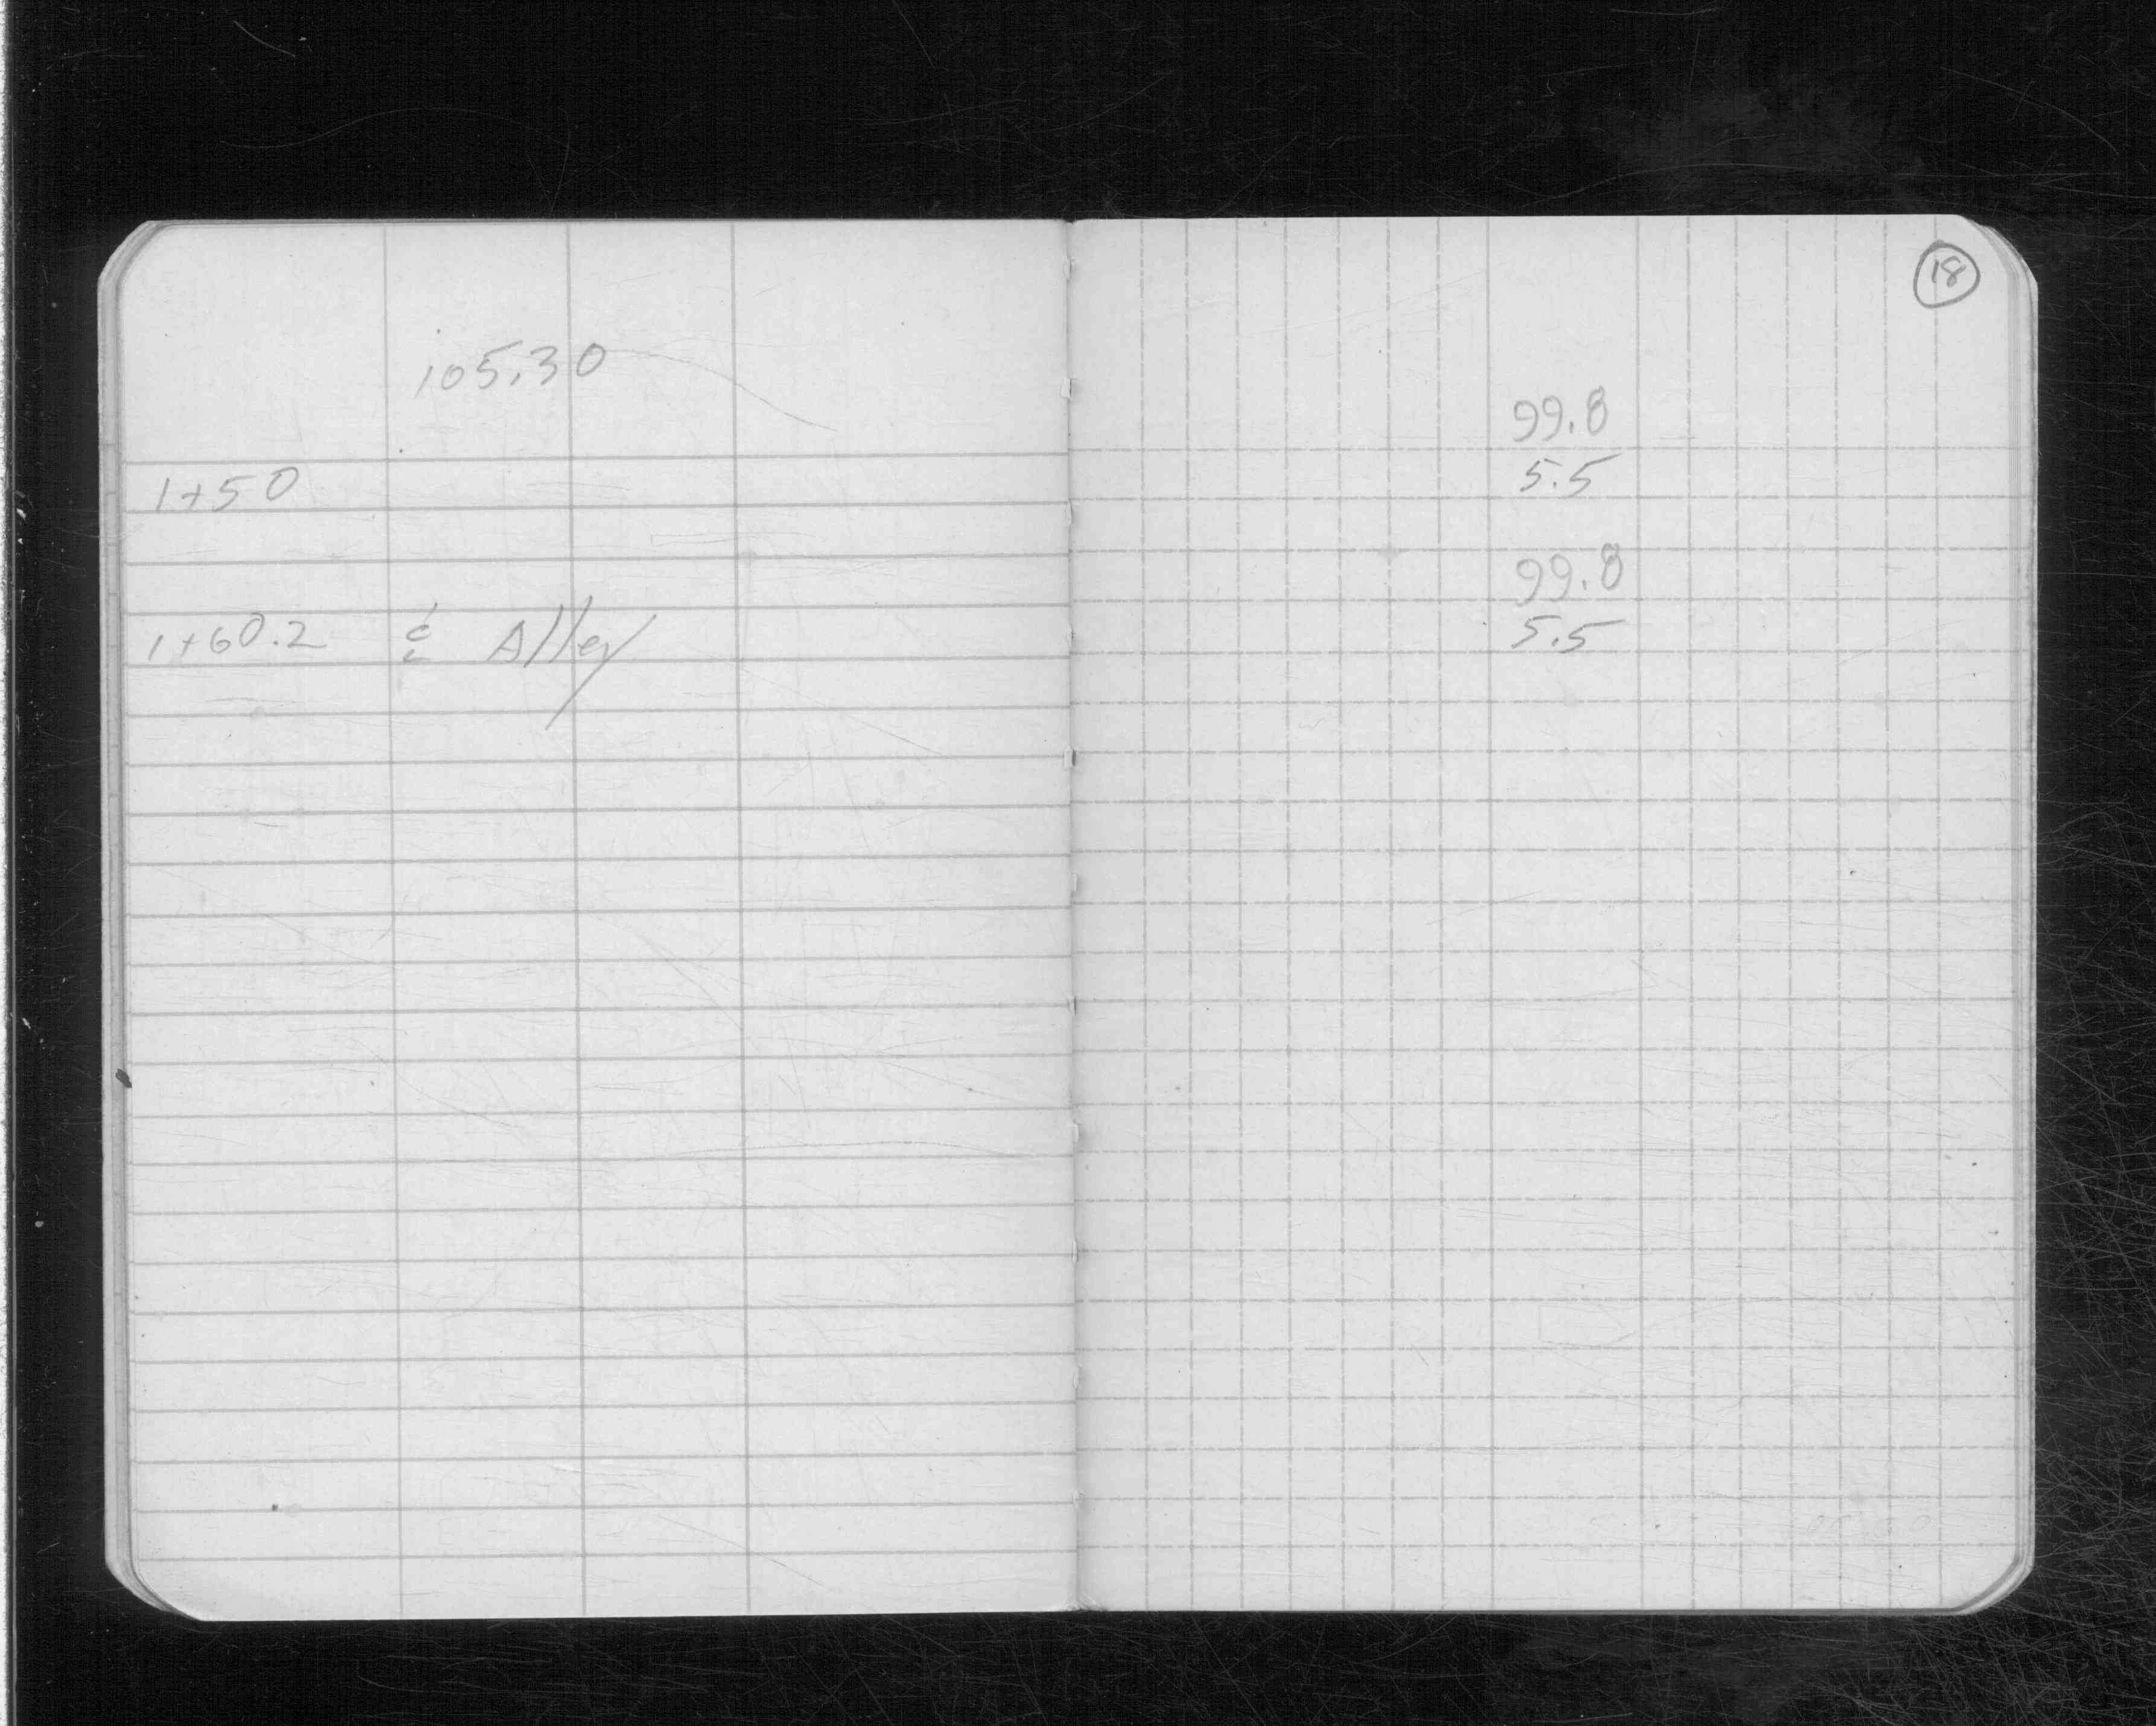 105.30
1+50
1+60.2 ℄ Alley
18
99.8
5.5
99.8
5.5